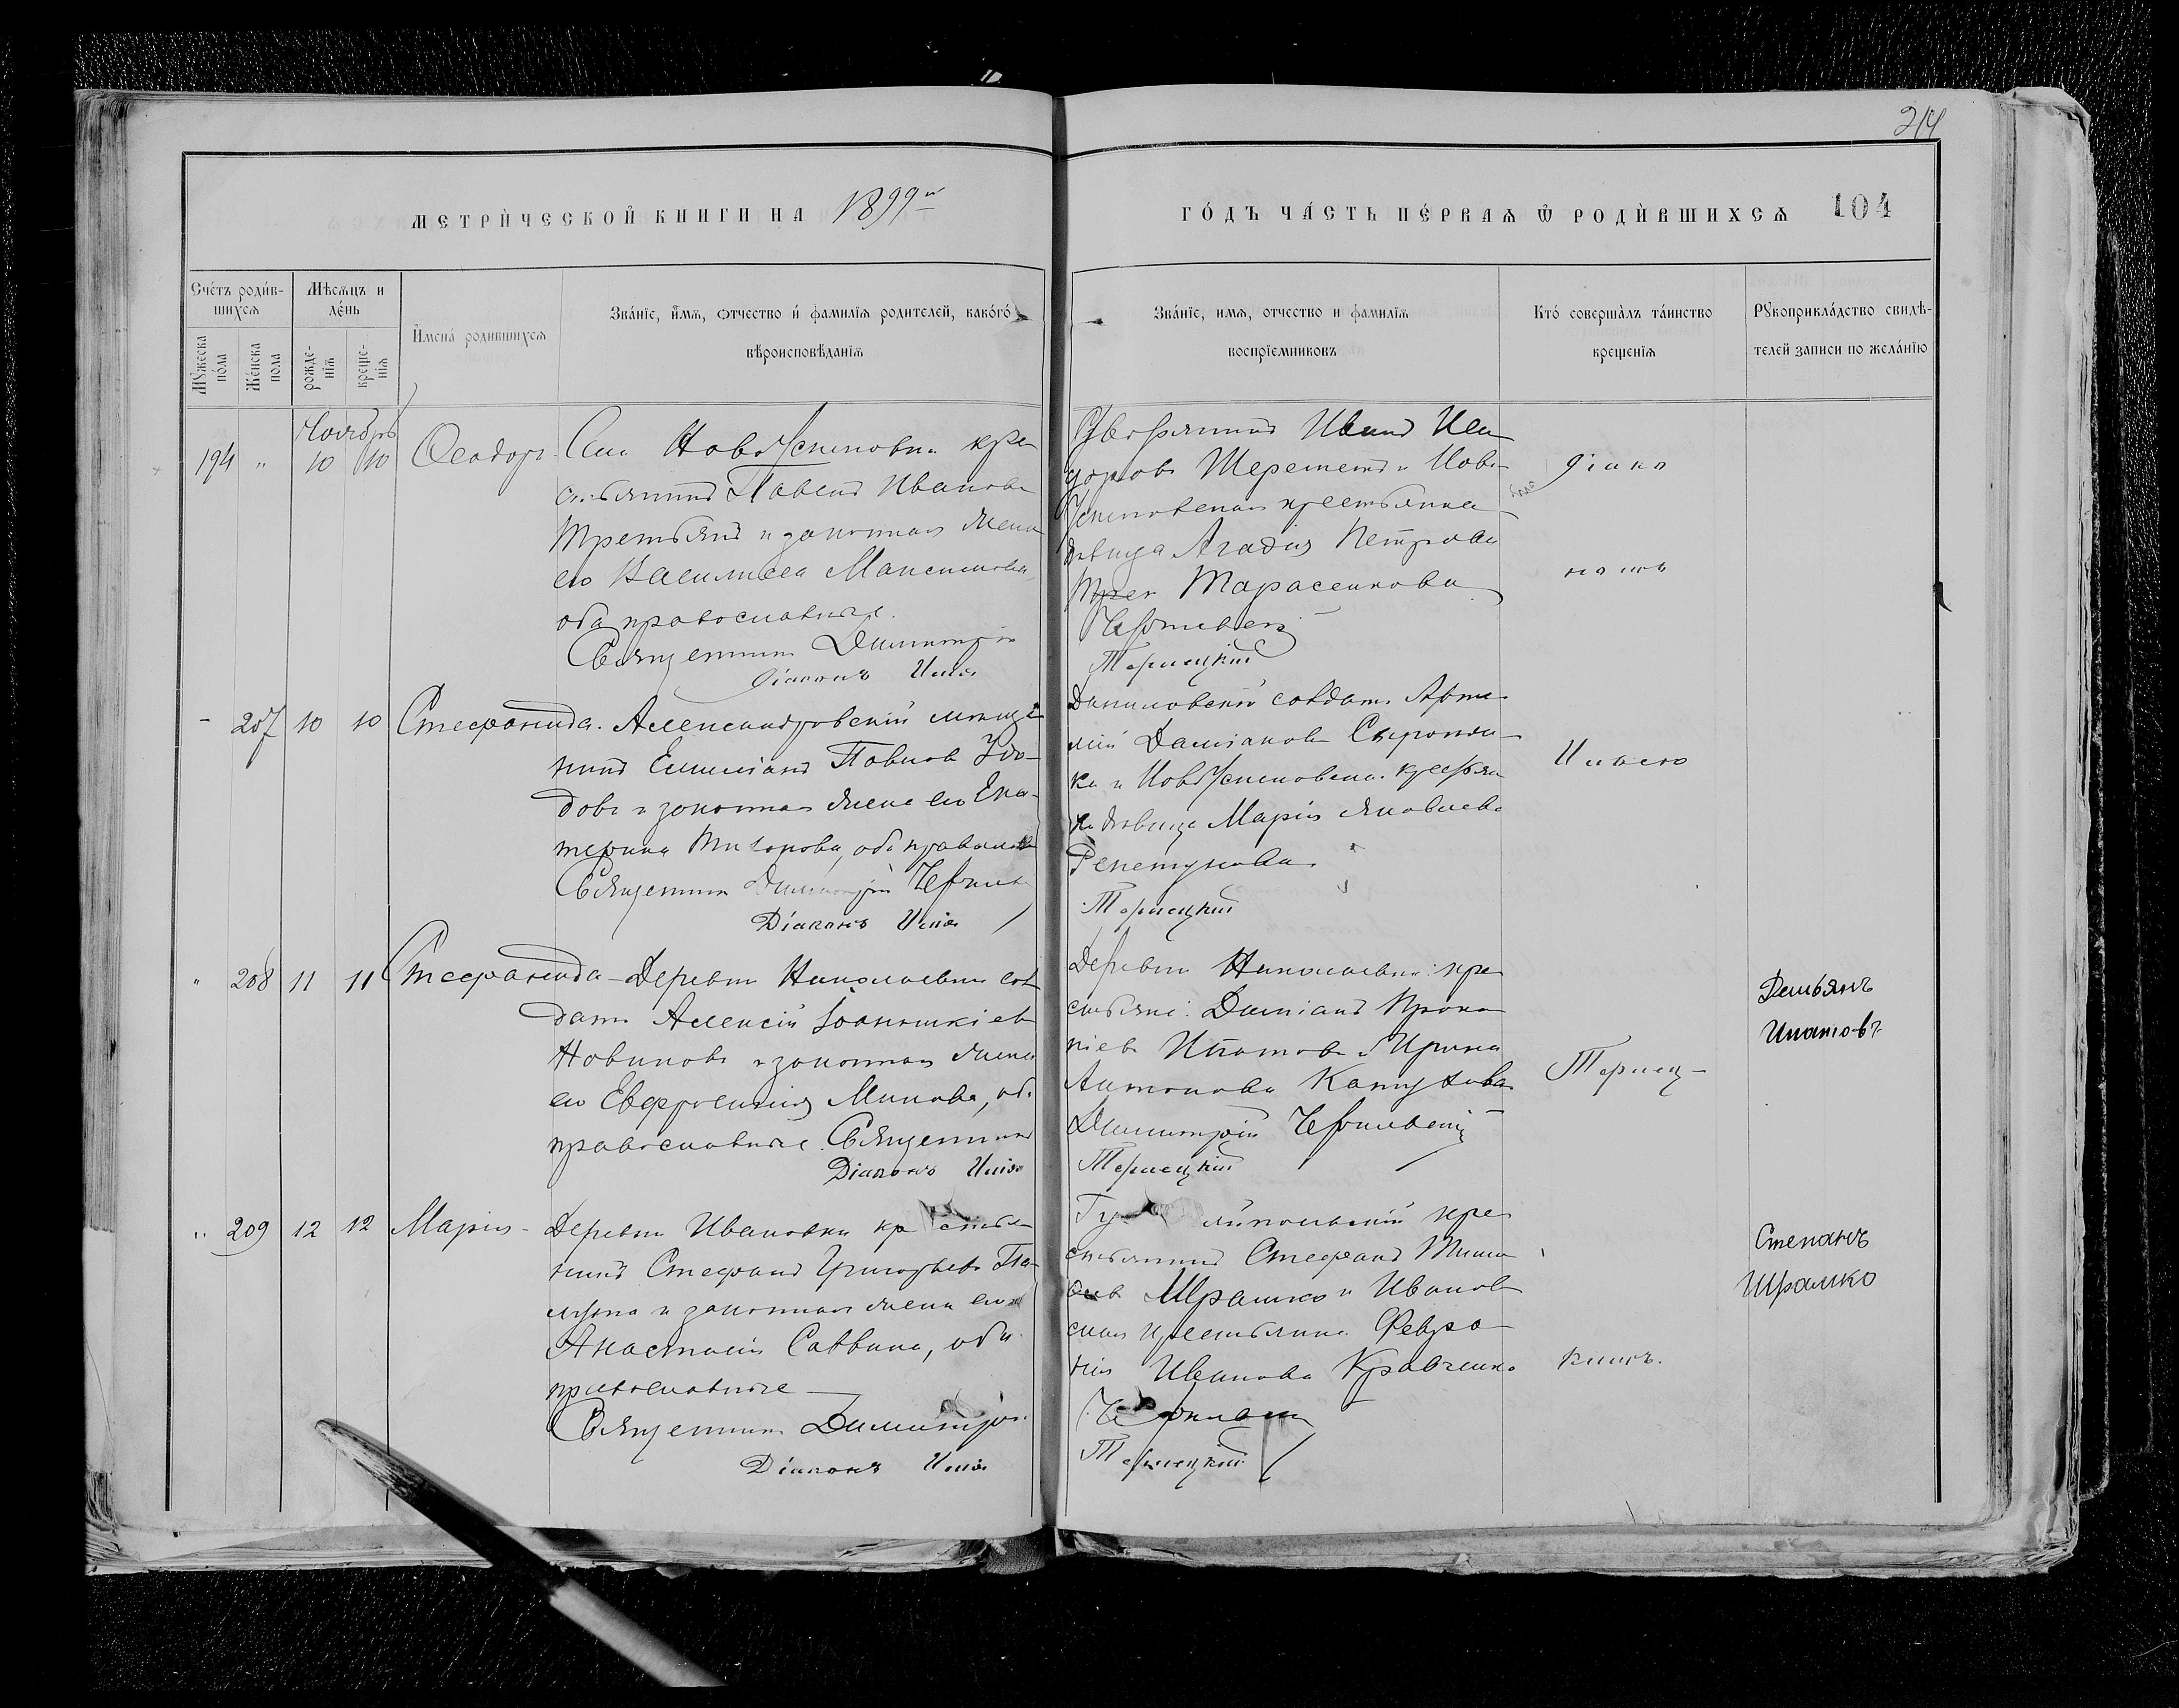 214
МЕТРИЧЕСКОЙ КНИГИ НА 1899й
ГОДЪ ЧАСТЬ ПЕРВАЯ Ѿ РОДИВШИХСЯ 104
Счетъ родив-
шихся
Мѣсяцъ и
день
Мужеска
пола
Женска
пола
рожде-
нія
креще-
нія
Имена родившихся
Званіе, имя, отчество и фамилія родителей, какого
вѣроисповѣданія
Званіе, имя, отчество и фамилія
воспріемниковъ
Кто совершалъ таинство
крещенія
Рукоприкладство свидѣ-
телей записи по желанію
Ноябрь
194 " 10 10 Ѳеодоръ
Села НовоУспеновки кре-
стьянинъ Павелъ Ивановъ
Третьякъ и законная жена
его Василисса Максимова,
оба православные.
Священникъ Димитрій
Діаконъ Илія
Дворянинъ Иванъ
Шереметъ и Ново
Успеновская крестьянка
дѣвица Агафія Петрова
Тарасенкова
Терлецкій
діако
номъ
- 207 10 10 Стефанида.
Александровскій мѣща-
нинъ Емиліанъ Павловъ Удо-
довъ и законная жена его Ека-
терина Титорова, оба правосл
Священникъ Димитрій
Діаконъ Илія
Даниловскій солдатъ
Даміановъ
ка и НовоУспеновская крестьян
ка дѣвица Марія Яковлева
Репетунова
Терлецкій
Иліею
" 208 11 11 Стефанида
Деревни Николаевки сол
датъ Алексій Іоанникіевъ
Новиковъ и законная жена
его Евфросинія Минова, оба
православные. Священникъ
Діаконъ Илія
Деревни Николаевки кре
стьяне: Даміанъ Проко
піевъ Ипатовъ и Ирина
Антонова
Димитрій
Терлецкій
Терлец-
Демьянъ
Ипатовъ
" 209 12 12 Марія
Деревни Ивановки кр стья
нинъ Стефанъ Григорьевъ
и законная жена его
Анастасія Саввина, оба
православные
Священникъ Димитрій
Діаконъ Илія
Гу ляйпольскій кре
стьянинъ Стефанъ
Шрамко и Иванов
ская крестьянка Февро
нія Иванова Кравченко
Терлецкій
кимъ.
Степанъ
Шрамко